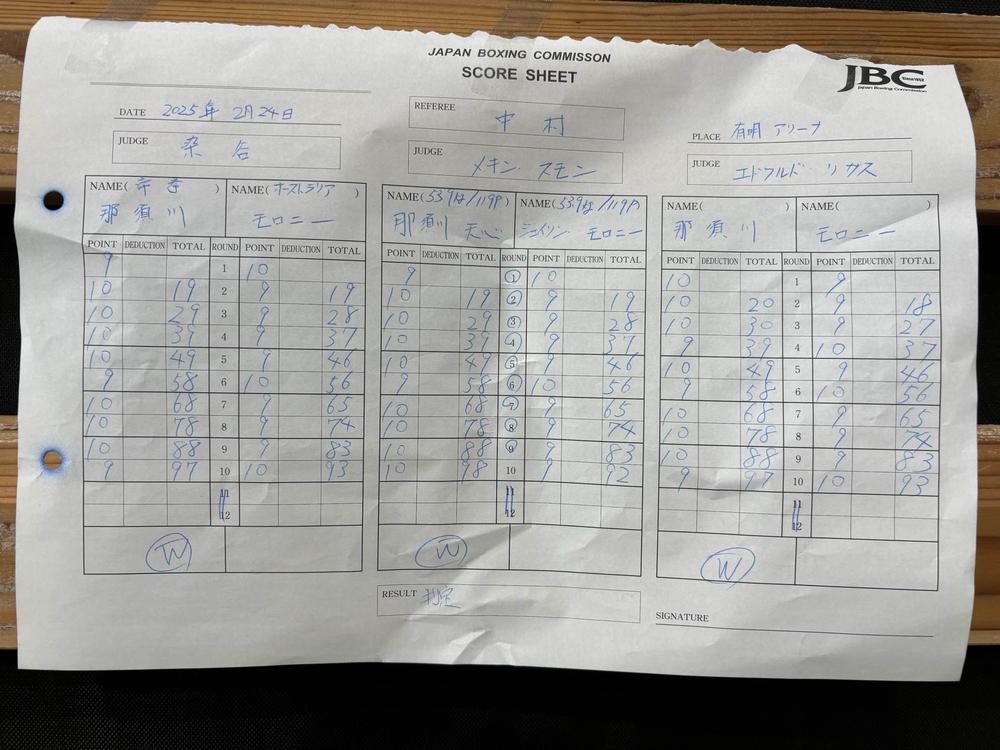 JAPAN BOXING COMMISSON
SCORE SHEET
JBC Since1952
Japan Boxing Commission
DATE 2025年 2月24日
REFEREE 中村
PLACE 有明アリーナ
JUDGE 染谷
JUDGE メキン・スモン
JUDGE エドワルド リガス
NAME(帝拳) NAME(オーストラリア)
那須川 モロニー
POINT DEDUCTION TOTAL ROUND POINT DEDUCTION TOTAL
9 1 10
10 19 2 9 19
10 29 3 9 28
10 39 4 9 37
10 49 5 9 46
9 58 6 10 56
10 68 7 9 65
10 78 8 9 74
10 88 9 9 83
9 97 10 10 93
11
12
W
NAME(53.9kg/119P) NAME(53.9kg/119P)
那須川 天心 ジェイソン モロニー
POINT DEDUCTION TOTAL ROUND POINT DEDUCTION TOTAL
9 1 10
10 19 2 9 19
10 29 3 9 28
10 39 4 9 37
10 49 5 9 46
9 58 6 10 56
10 68 7 9 65
10 78 8 9 74
10 88 9 9 83
10 98 10 9 92
11
12
W
NAME( ) NAME( )
那須川 モロニー
POINT DEDUCTION TOTAL ROUND POINT DEDUCTION TOTAL
10 1 9
10 20 2 9 18
10 30 3 9 27
9 39 4 10 37
10 49 5 9 46
9 58 6 10 56
10 68 7 9 65
10 78 8 9 74
10 88 9 9 83
9 97 10 10 93
11
12
W
RESULT 判定
SIGNATURE